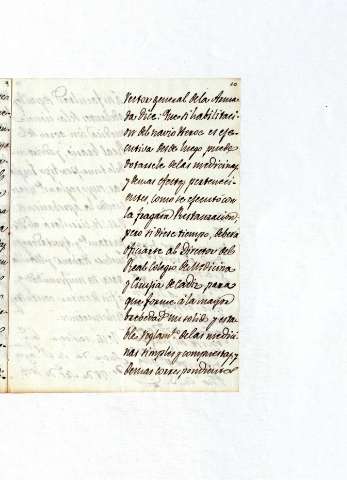 10
rector general de la Arma
da dice: Que si la habilitaci
on del navio Heroe es ejec
cutiva desde luego puede
dotarsele de las medicinas
y demas efectos pertenenci
entes, como se ejecutó con
la fragata Restauracion,
pero si diese tiempo, deberá
oficiarse al Director del
Real Colegio de Medicina
y Cirujia de Cadiz para
que forme á la mayor
brebedad un solido y esta
ble reglamto. de las medici
nas simples y compuestas, y
demas correspondiente